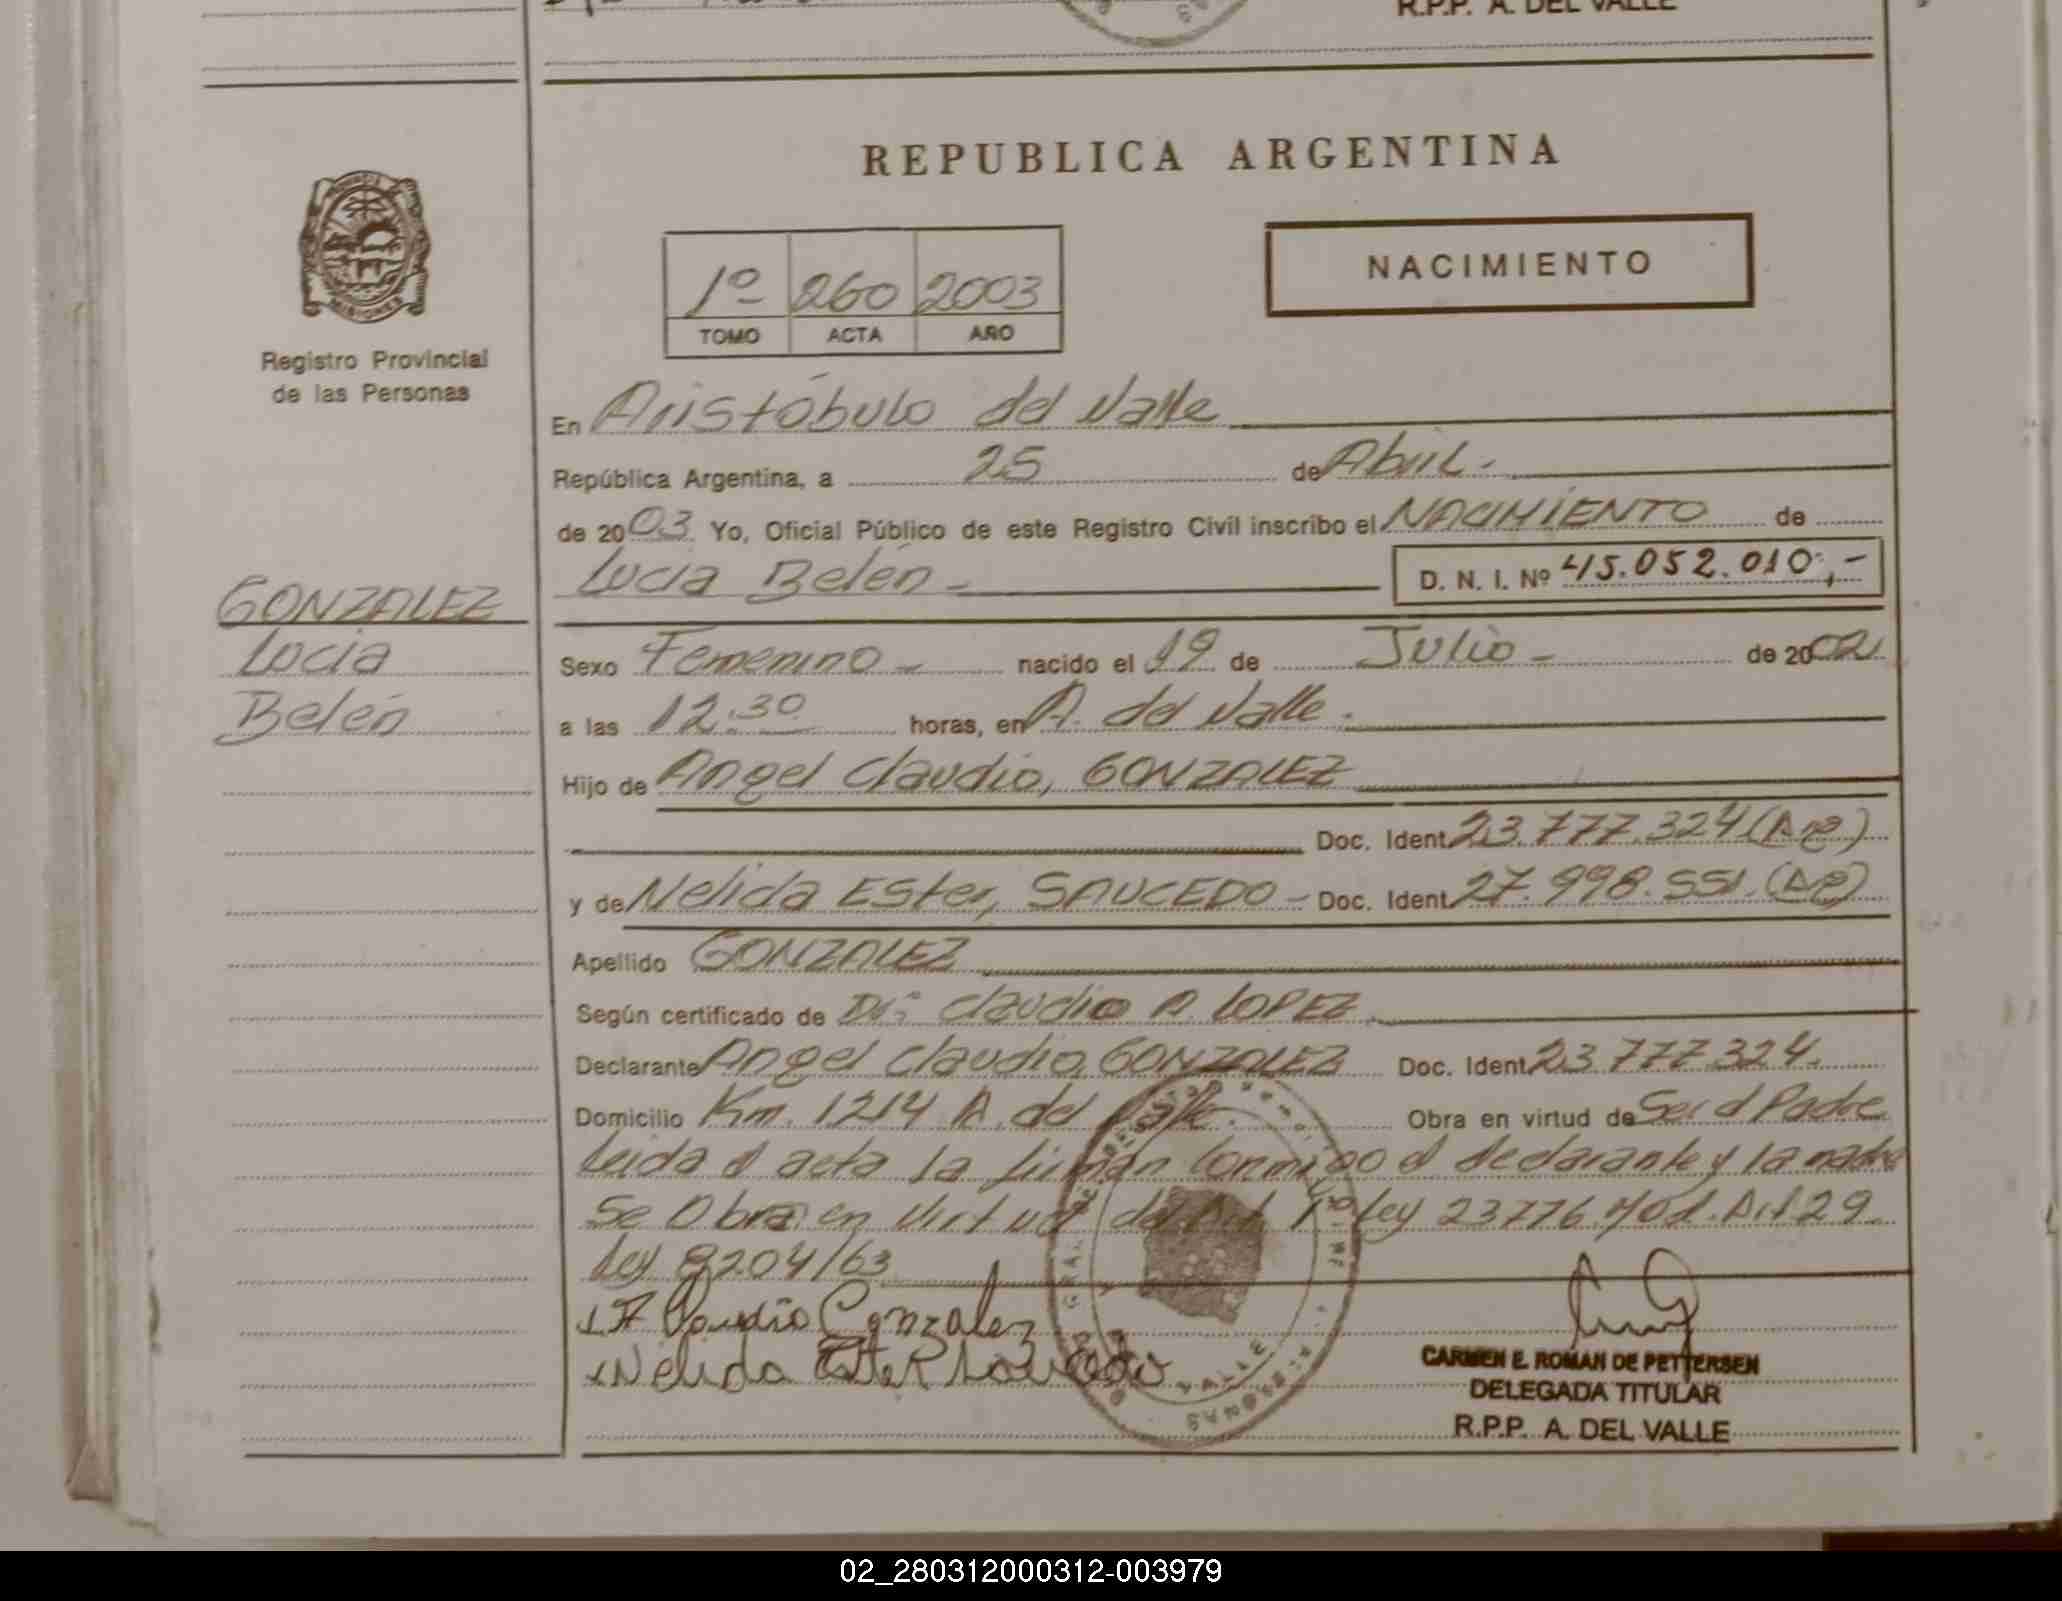 R.P.P. A. DEL VALLE
REPUBLICA ARGENTINA
NACIMIENTO
1º 260 2003
TOMO ACTA AÑO
Registro Provincial
de las Personas
En Aristóbulo del Valle
República Argentina, a 25 de Abril.-
de 2003 Yo, Oficial Público de este Registro Civil inscribo el NACIMIENTO de
Lucia Belén - D. N. I. Nº 45.052.010,-
GONZALEZ
Lucia
Belén
Sexo Femenino - nacido el 19 de Julio - de 2002
a las 12:30 horas, en A. del Valle.
Hijo de Angel Claudio, GONZALEZ
Doc. Ident. 23.777.324 (Arg)
y de Nelida Ester, SAUCEDO - Doc. Ident. 27.998.551. (Ag)
Apellido GONZALEZ
Según certificado de Dr: Claudio A. LOPEZ
Declarante Angel Claudio, GONZALEZ Doc. Ident. 23.777.324.
Domicilio Km. 1214 A. del Valle. Obra en virtud de Ser el Padre
Leida el acta la firman conmigo el declarante y la madre
Se Obra en virtud del Art. 1º Ley 23776 Mod. Art 29
Ley 8204/63
A Claudio Gonzalez
Nelida Ester Saucedo
CARMEN E. ROMAN DE PETTERSEN
DELEGADA TITULAR
R.P.P. A. DEL VALLE
02_280312000312-003979